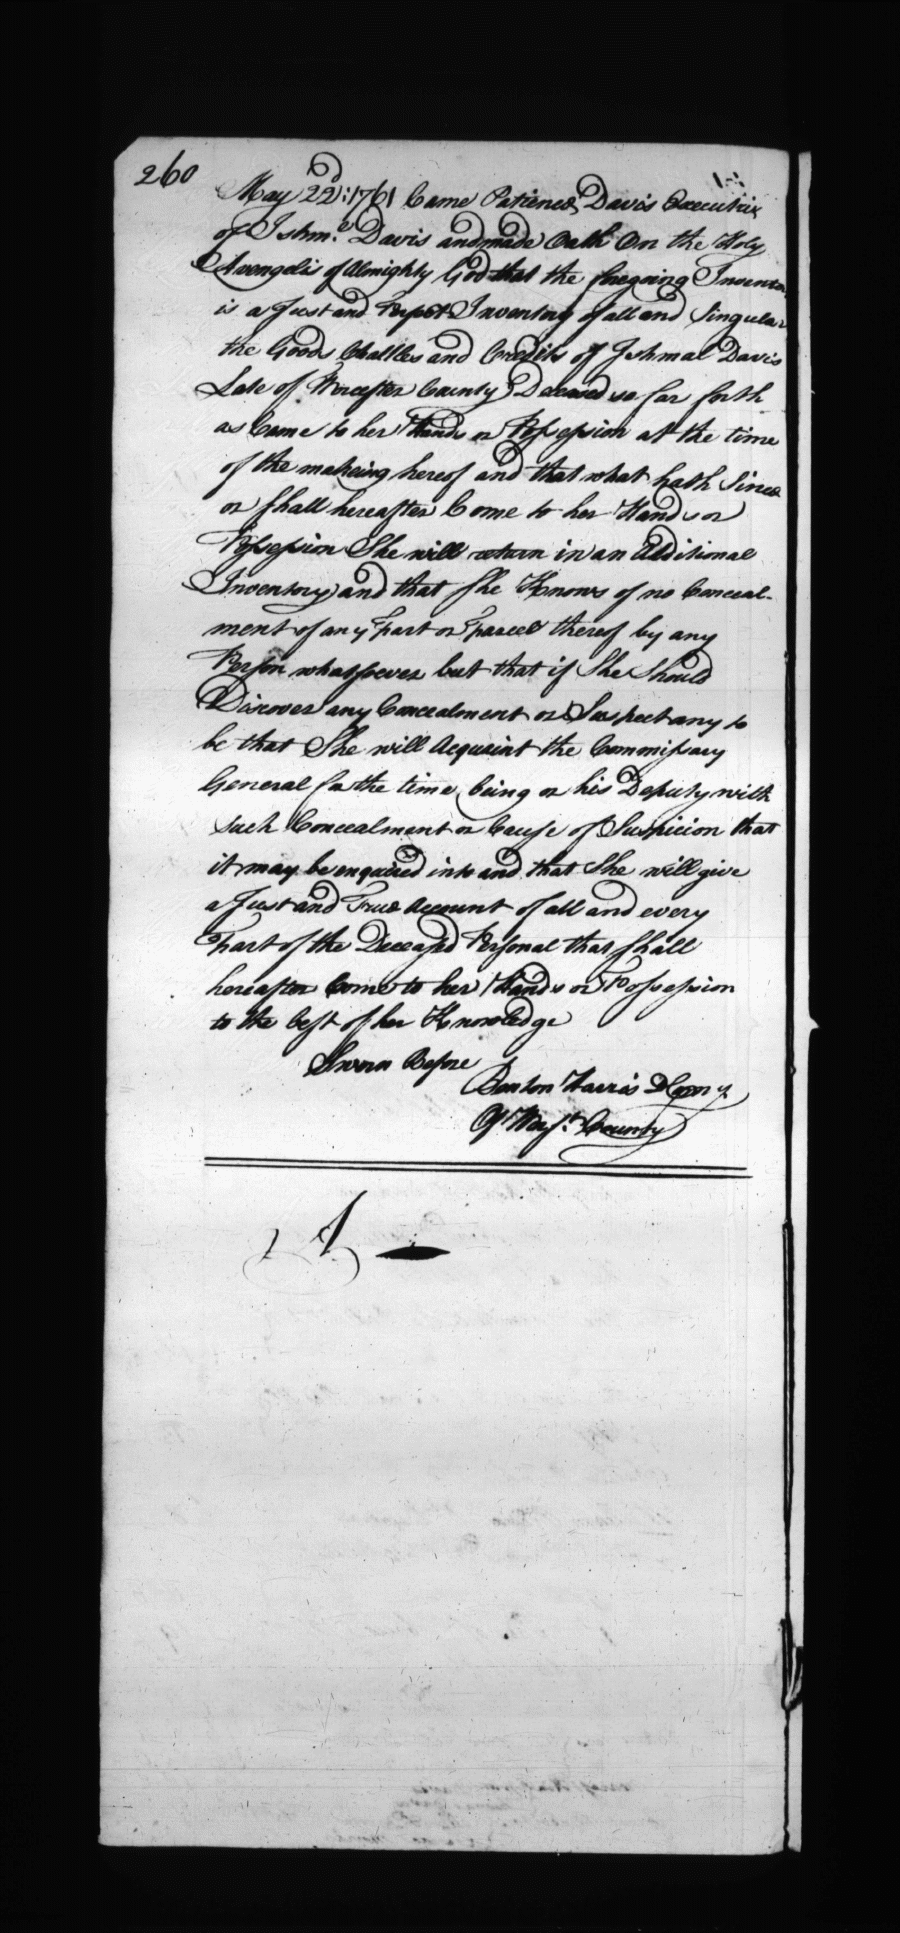 260
May 22d: 1761 Came Patience Davis Executrix
of Ishml. Davis and made Oath On the Holy
Avengelis of Almighty God that the foregoing Inventory
is a Just and Perfect Inventory of all and Singular
the Goods Chattles and Credits of Ishmal Davis
Late of Worcester County Deceased so far forth
as Came to her Hands or Possession at the time
of the makeing hereof and that what hath Since
or shall hereafter Come to her Hands or
Possession She will return in an Additional
Inventory and that She Knows of no Conceal-
ment of any Part or Parcel thereof by any
Person whatsoever but that if She Should
Discover any Concealment or Suspect any to
be that She will Acquaint the Commissary
General for the time being or his Deputy with
such Concealment or Cause of Suspicion that
it may be enquired into and that She will give
a Just and True Account of all and every
Part of the Deceased Personal that shall
hereafter Come to her Hands or Possession
to the best of her Knowledge
Sworn Before
Benton Harris DComy
Of Worst. County